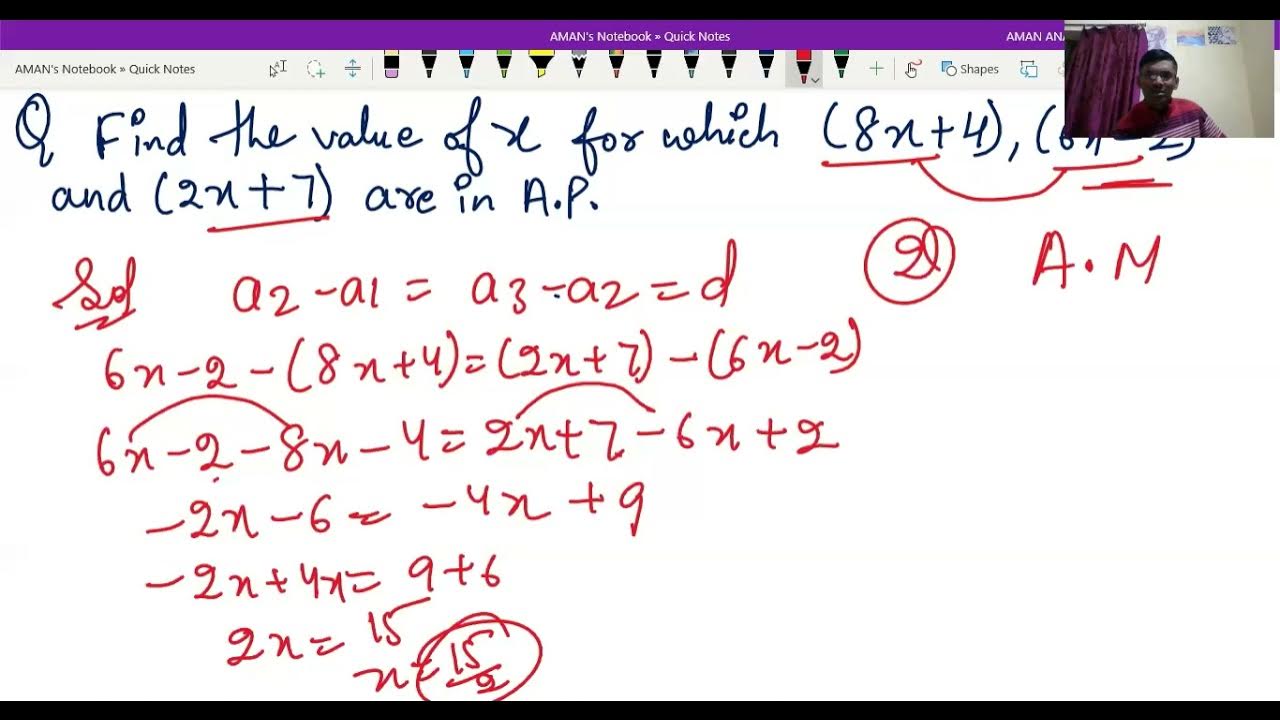 AMAN's Notebook » Quick Notes
AMAN
AMAN's Notebook » Quick Notes
Shapes
Q Find the value of x for which (8x+4), (6x-2)
and (2x+7) are in A.P.
Sol a2-a1 = a3-a2 = d
2) A.M
6x-2-(8x+4)=(2x+7)-(6x-2)
6x-2-8x-4=2x+7-6x+2
-2x-6=-4x+9
-2x+4x=9+6
2x=15
x=15/2